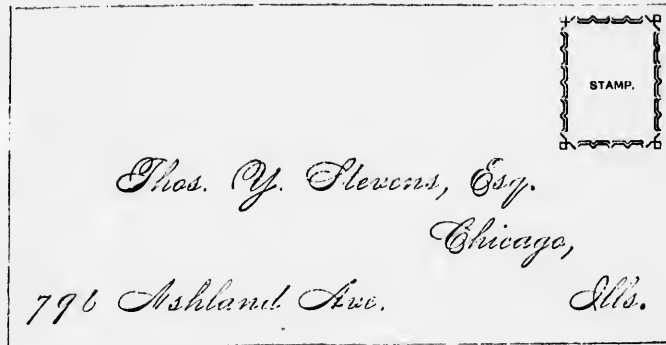 STAMP.
Thos. Y. Stevens, Esq.
Chicago,
796 Ashland Ave. Ills.